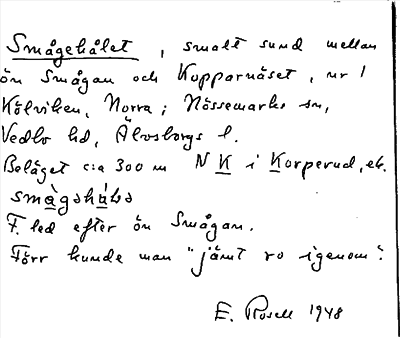 Smågehålet, smalt sund mellan
ön Smågan och Kopparnäset, nr 1
Kölviken, Norra; Nössemarks sn,
Vedbo hd, Älvsborgs l.
Beläget c:a 300 m N K i Korperud, ek.
smågshåls
F. led efter ön Smågan.
Förr kunde man "jämt ro igenom".
E. Rosell 1948